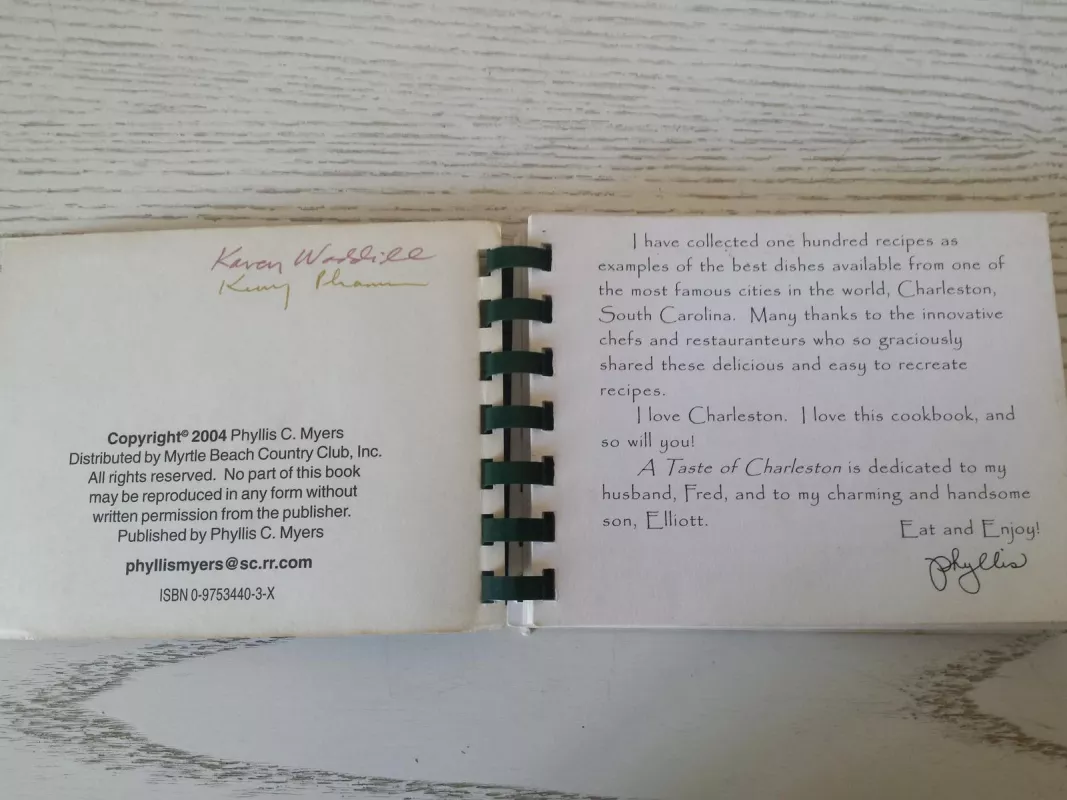 Karen Waddill
Kenny
Copyright© 2004 Phyllis C. Myers
Distributed by Myrtle Beach Country Club, Inc.
All rights reserved. No part of this book
may be reproduced in any form without
written permission from the publisher.
Published by Phyllis C. Myers
phyllismyers@sc.rr.com
ISBN 0-9753440-3-X
I have collected one hundred recipes as
examples of the best dishes available from one of
the most famous cities in the world, Charleston,
South Carolina. Many thanks to the innovative
chefs and restauranteurs who so graciously
shared these delicious and easy to recreate
recipes.
I love Charleston. I love this cookbook, and
so will you!
A Taste of Charleston is dedicated to my
husband, Fred, and to my charming and handsome
son, Elliott.
Eat and Enjoy!
Phyllis